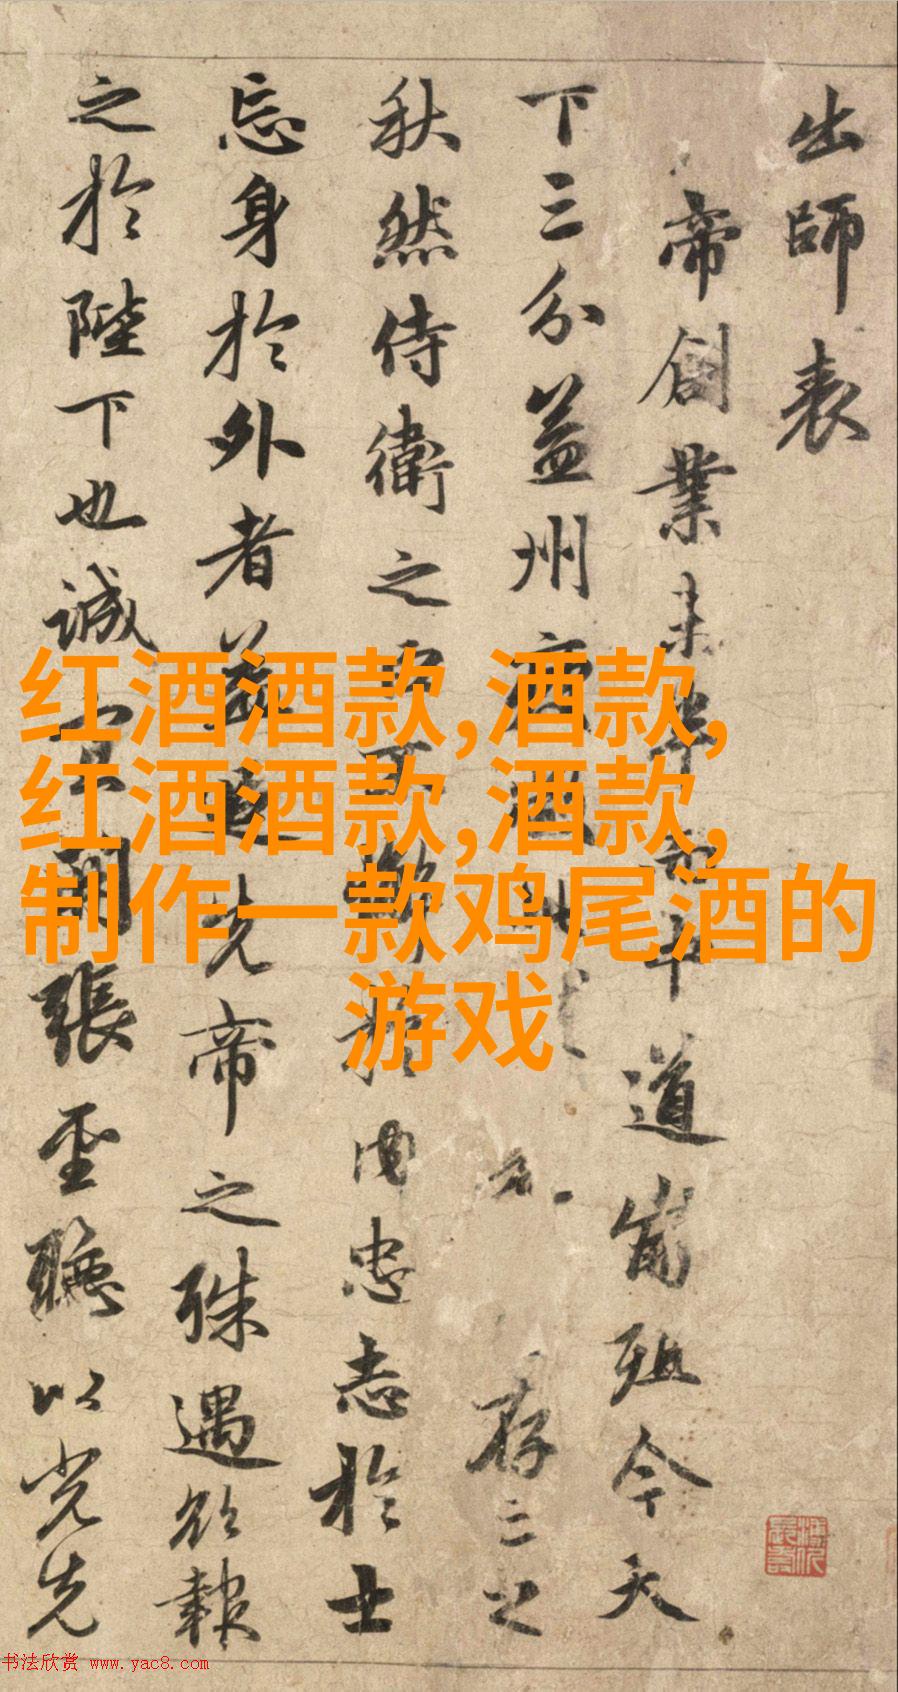 出師表
帝創業未半而中道崩殂今天
下三分益州疲弊此存亡之
秋然侍衛之臣不懈於内忠志於士
忘身於外者蓋追先帝之殊遇欲報
之於陛下也誠宜開張聖聽以光先
红酒酒款,酒款,
红酒酒款,酒款,
制作一款鸡尾酒的
游戏
书法欣赏 www.yac8.com